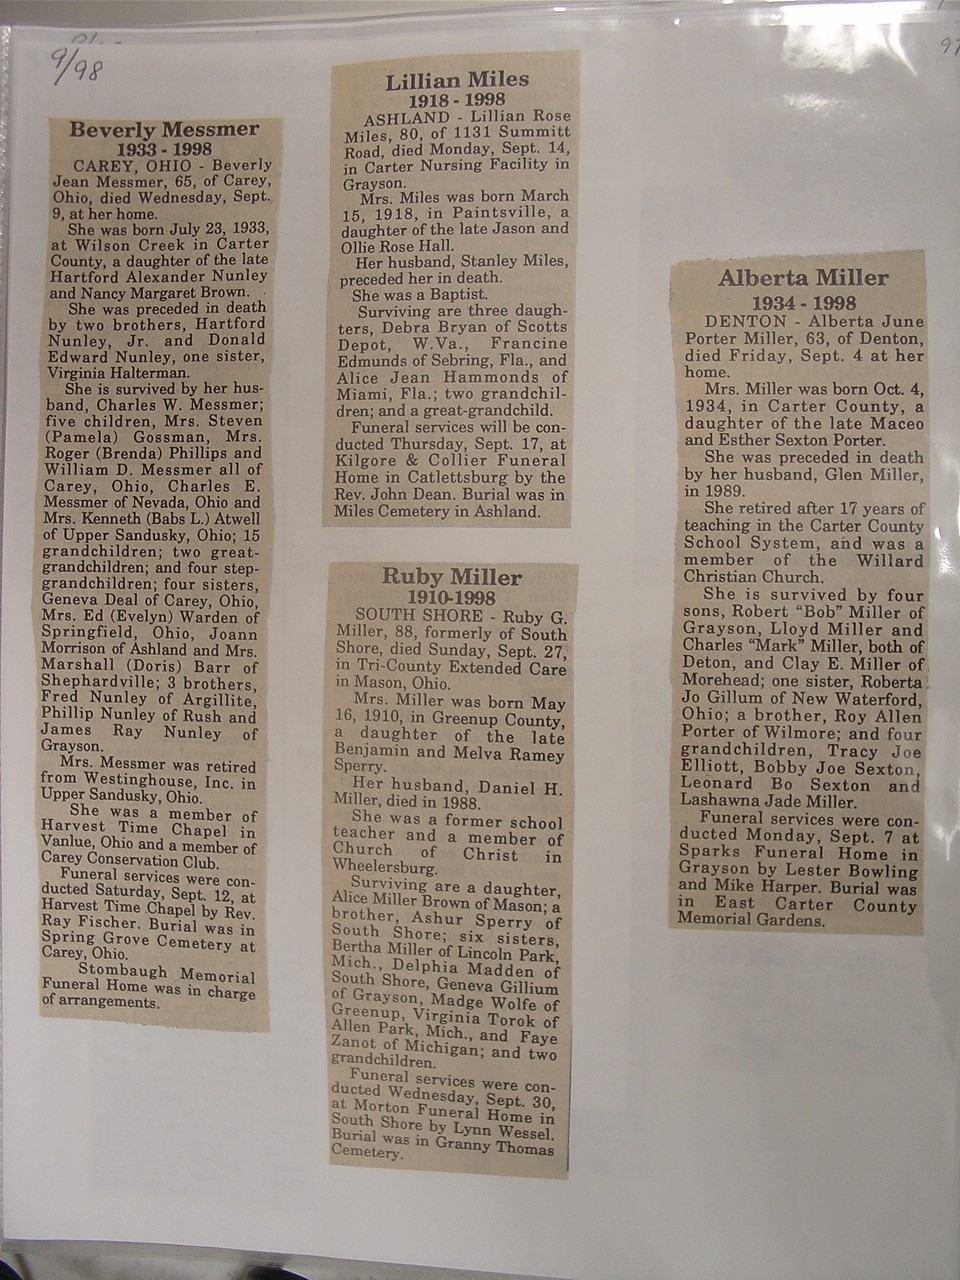 9/98
Beverly Messmer
1933 - 1998
CAREY, OHIO - Beverly
Jean Messmer, 65, of Carey,
Ohio, died Wednesday, Sept.
9, at her home.
She was born July 23, 1933,
at Wilson Creek in Carter
County, a daughter of the late
Hartford Alexander Nunley
and Nancy Margaret Brown.
She was preceded in death
by two brothers, Hartford
Nunley, Jr. and Donald
Edward Nunley, one sister,
Virginia Halterman.
She is survived by her hus-
band, Charles W. Messmer;
five children, Mrs. Steven
(Pamela) Gossman, Mrs.
Roger (Brenda) Phillips and
William D. Messmer all of
Carey, Ohio, Charles E.
Messmer of Nevada, Ohio and
Mrs. Kenneth (Babs L.) Atwell
of Upper Sandusky, Ohio; 15
grandchildren; two great-
grandchildren; and four step-
grandchildren; four sisters,
Geneva Deal of Carey, Ohio,
Mrs. Ed (Evelyn) Warden of
Springfield, Ohio, Joann
Morrison of Ashland and Mrs.
Marshall (Doris) Barr of
Shephardville; 3 brothers,
Fred Nunley of Argillite,
Phillip Nunley of Rush and
James Ray Nunley of
Grayson.
Mrs. Messmer was retired
from Westinghouse, Inc. in
Upper Sandusky, Ohio.
She was a member of
Harvest Time Chapel in
Vanlue, Ohio and a member of
Carey Conservation Club.
Funeral services were con-
ducted Saturday, Sept. 12, at
Harvest Time Chapel by Rev.
Ray Fischer. Burial was in
Spring Grove Cemetery at
Carey, Ohio.
Stombaugh Memorial
Funeral Home was in charge
of arrangements.
Lillian Miles
1918 - 1998
ASHLAND - Lillian Rose
Miles, 80, of 1131 Summitt
Road, died Monday, Sept. 14,
in Carter Nursing Facility in
Grayson.
Mrs. Miles was born March
15, 1918, in Paintsville, a
daughter of the late Jason and
Ollie Rose Hall.
Her husband, Stanley Miles,
preceded her in death.
She was a Baptist.
Surviving are three daugh-
ters, Debra Bryan of Scotts
Depot, W.Va., Francine
Edmunds of Sebring, Fla., and
Alice Jean Hammonds of
Miami, Fla.; two grandchil-
dren; and a great-grandchild.
Funeral services will be con-
ducted Thursday, Sept. 17, at
Kilgore & Collier Funeral
Home in Catlettsburg by the
Rev. John Dean. Burial was in
Miles Cemetery in Ashland.
Ruby Miller
1910-1998
SOUTH SHORE - Ruby G.
Miller, 88, formerly of South
Shore, died Sunday, Sept. 27,
in Tri-County Extended Care
in Mason, Ohio.
Mrs. Miller was born May
16, 1910, in Greenup County,
a daughter of the late
Benjamin and Melva Ramey
Sperry.
Her husband, Daniel H.
Miller, died in 1988.
She was a former school
teacher and a member of
Church of Christ in
Wheelersburg.
Surviving are a daughter,
Alice Miller Brown of Mason; a
brother, Ashur Sperry of
South Shore; six sisters,
Bertha Miller of Lincoln Park,
Mich., Delphia Madden of
South Shore, Geneva Gillium
of Grayson, Madge Wolfe of
Greenup, Virginia Torok of
Allen Park, Mich., and Faye
Zanot of Michigan; and two
grandchildren.
Funeral services were con-
ducted Wednesday, Sept. 30,
at Morton Funeral Home in
South Shore by Lynn Wessel.
Burial was in Granny Thomas
Cemetery.
Alberta Miller
1934 - 1998
DENTON - Alberta June
Porter Miller, 63, of Denton,
died Friday, Sept. 4 at her
home.
Mrs. Miller was born Oct. 4,
1934, in Carter County, a
daughter of the late Maceo
and Esther Sexton Porter.
She was preceded in death
by her husband, Glen Miller,
in 1989.
She retired after 17 years of
teaching in the Carter County
School System, and was a
member of the Willard
Christian Church.
She is survived by four
sons, Robert “Bob” Miller of
Grayson, Lloyd Miller and
Charles “Mark” Miller, both of
Deton, and Clay E. Miller of
Morehead; one sister, Roberta
Jo Gillum of New Waterford,
Ohio; a brother, Roy Allen
Porter of Wilmore; and four
grandchildren, Tracy Joe
Elliott, Bobby Joe Sexton,
Leonard Bo Sexton and
Lashawna Jade Miller.
Funeral services were con-
ducted Monday, Sept. 7 at
Sparks Funeral Home in
Grayson by Lester Bowling
and Mike Harper. Burial was
in East Carter County
Memorial Gardens.